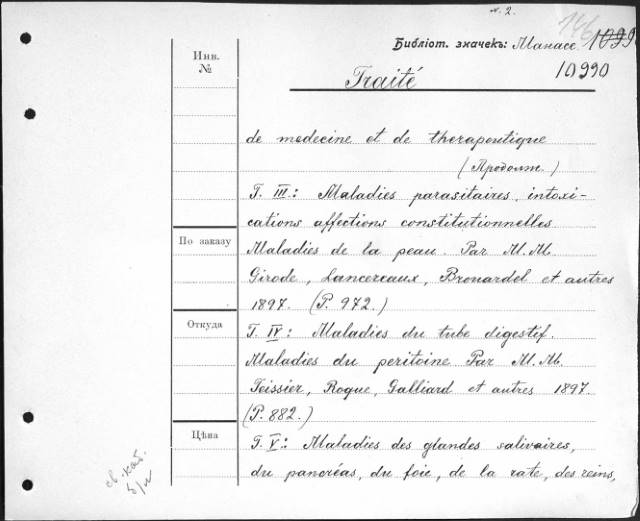 к. 2.
146
Библіот. значекъ: Манасе. 1099
10990
Инв.
№
Traité
de medecine et de therapeutique
(Продолж.)
T. III.: Maladies parasitaires, intoxi-
cations affections constitutionnelles
По заказу
Maladies de la peau. Par M.M.
Girode, Lancereaux, Bronardel et autres
1897. (P. 972.)
Откуда
T. IV: Maladies du tube digestif.
Maladies du peritoine Par M.M.
Teissier, Roque, Galliard et autres 1897.
(P. 882.)
Цѣна
T. V: Maladies des glandes salivaires,
du pancréas, du foie, de la rate, des reins,
св. каб.
б/н